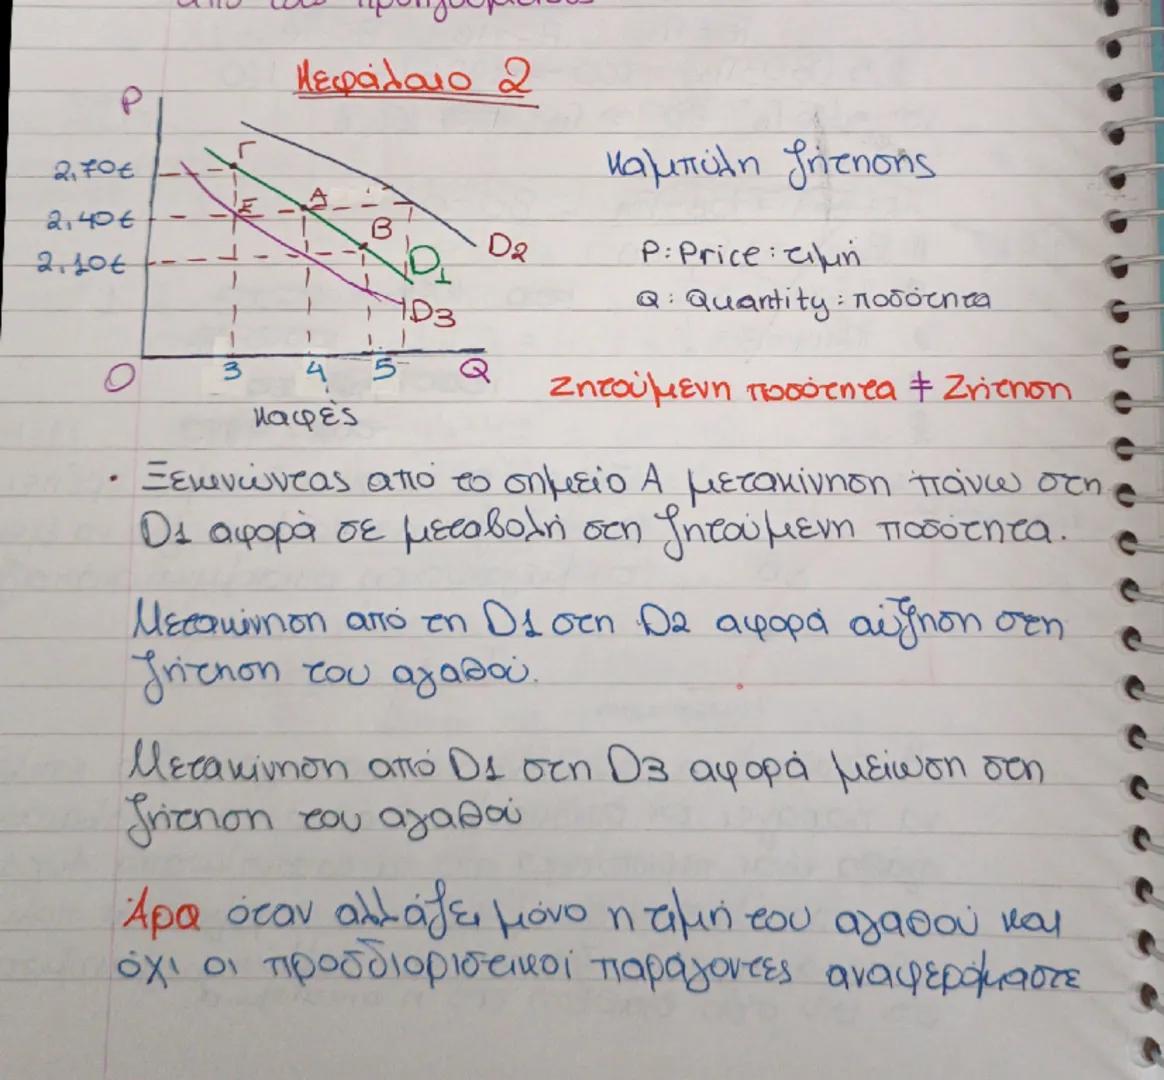 από του
Κεφάλαιο 2
P
2,70€
2,40€
2,10€
Γ
A
E
B
D1
D2
D3
O
3
4
5
Q
καφές
καμπύλη ζήτησης
P: Price: τιμή
Q: Quantity: ποσότητα
Ζητούμενη ποσότητα ≠ Ζήτηση
· Ξεκινώντας από το σημείο Α μετακίνηση πάνω στη
D1 αφορά σε μεταβολή στη ζητούμενη ποσότητα.
Μετακίνηση από τη D1 στη D2 αφορά αύξηση στη
ζήτηση του αγαθού.
Μετακίνηση από D1 στη D3 αφορά μείωση στη
ζήτηση του αγαθού
Άρα όταν αλλάζει μόνο η τιμή του αγαθού και
όχι οι προσδιοριστικοί παράγοντες αναφερόμαστε